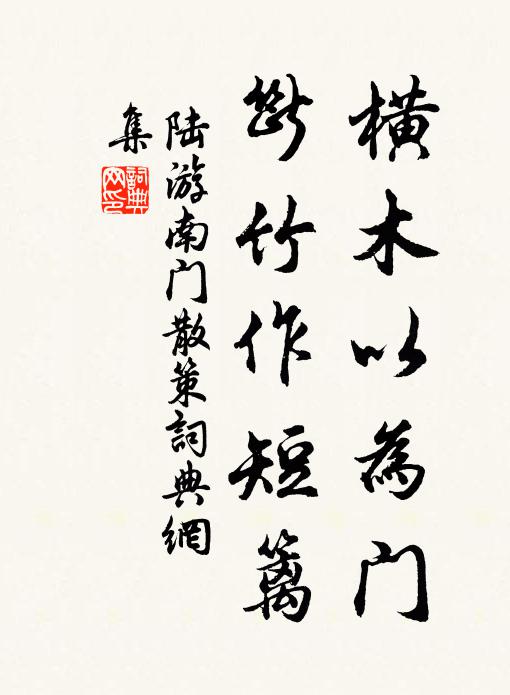 横木以為门
斷竹作短篱
陆游南门散策詞典網
集
詞典
网印